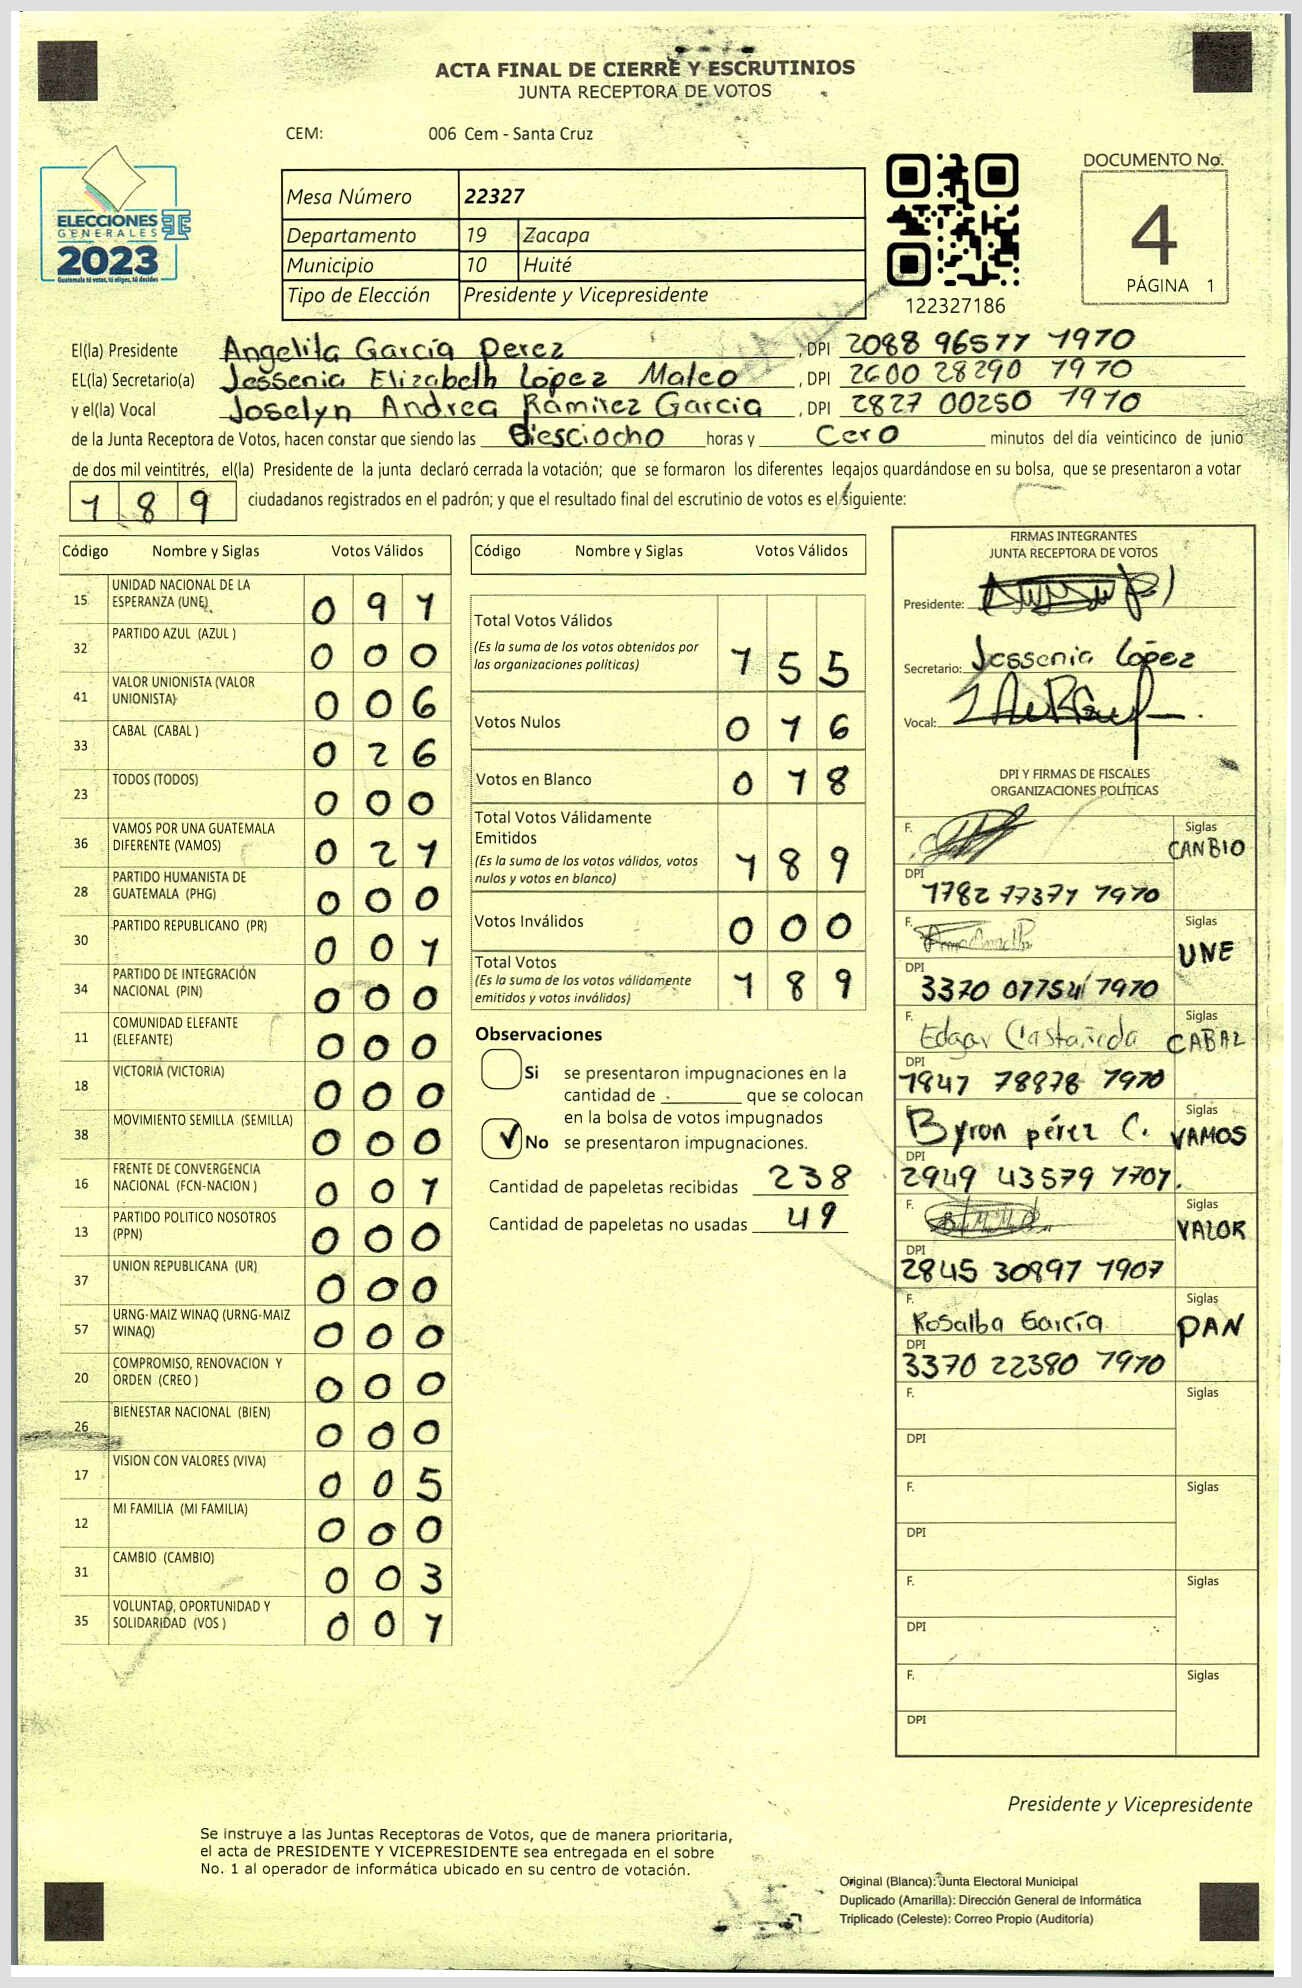 ACTA FINAL DE CIERRE Y ESCRUTINIOS
JUNTA RECEPTORA DE VOTOS
CEM: 006 Cem - Santa Cruz
ELECCIONES
GENERALES
2023
Guatemala tú votas, tú eliges, tú decides
Mesa Número 22327
Departamento 19 Zacapa
Municipio 10 Huité
Tipo de Elección Presidente y Vicepresidente
122327186
DOCUMENTO No.
4
PÁGINA 1
El(la) Presidente Angelita García Perez, DPI 2088 96577 1970
EL(la) Secretario(a) Jessenia Elizabeth López Mateo, DPI 2600 28290 1970
y el(la) Vocal Joselyn Andrea Ramirez Garcia, DPI 2827 00250 1970
de la Junta Receptora de Votos, hacen constar que siendo las Diesciocho horas y Cero minutos del día veinticinco de junio
de dos mil veintitrés, el(la) Presidente de la junta declaró cerrada la votación; que se formaron los diferentes legajos quardándose en su bolsa, que se presentaron a votar
189 ciudadanos registrados en el padrón; y que el resultado final del escrutinio de votos es el siguiente:
Código Nombre y Siglas Votos Válidos
15 UNIDAD NACIONAL DE LA ESPERANZA (UNE) 091
32 PARTIDO AZUL (AZUL ) 000
41 VALOR UNIONISTA (VALOR UNIONISTA) 006
33 CABAL (CABAL ) 026
23 TODOS (TODOS) 000
36 VAMOS POR UNA GUATEMALA DIFERENTE (VAMOS) 021
28 PARTIDO HUMANISTA DE GUATEMALA (PHG) 000
30 PARTIDO REPUBLICANO (PR) 001
34 PARTIDO DE INTEGRACIÓN NACIONAL (PIN) 000
11 COMUNIDAD ELEFANTE (ELEFANTE) 000
18 VICTORIA (VICTORIA) 000
38 MOVIMIENTO SEMILLA (SEMILLA) 000
16 FRENTE DE CONVERGENCIA NACIONAL (FCN-NACION ) 001
13 PARTIDO POLITICO NOSOTROS (PPN) 000
37 UNION REPUBLICANA (UR) 000
57 URNG-MAIZ WINAQ (URNG-MAIZ WINAQ) 000
20 COMPROMISO, RENOVACION Y ORDEN (CREO ) 000
26 BIENESTAR NACIONAL (BIEN) 000
17 VISION CON VALORES (VIVA) 005
12 MI FAMILIA (MI FAMILIA) 000
31 CAMBIO (CAMBIO) 003
35 VOLUNTAD, OPORTUNIDAD Y SOLIDARIDAD (VOS ) 001
Código Nombre y Siglas Votos Válidos
Total Votos Válidos
(Es la suma de los votos obtenidos por
las organizaciones políticas) 155
Votos Nulos 016
Votos en Blanco 018
Total Votos Válidamente
Emitidos
(Es la suma de los votos válidos, votos
nulos y votos en blanco) 189
Votos Inválidos 000
Total Votos
(Es la suma de los votos válidamente
emitidos y votos inválidos) 189
Observaciones
Si se presentaron impugnaciones en la
cantidad de ________ que se colocan
en la bolsa de votos impugnados
No se presentaron impugnaciones.
Cantidad de papeletas recibidas 238
Cantidad de papeletas no usadas 49
FIRMAS INTEGRANTES
JUNTA RECEPTORA DE VOTOS
Presidente:
Secretario: Jessenia López
Vocal:
DPI Y FIRMAS DE FISCALES
ORGANIZACIONES POLÍTICAS
F. Siglas CANBIO
DPI 1782 77371 1970
F. Siglas UNE
DPI 3370 07754 1970
F. Edgar Castañeda Siglas CABAL
DPI 1847 78878 1970
F. Byron pérez C. Siglas VAMOS
DPI 2949 43579 1701.
F. Siglas VALOR
DPI 2845 30897 1907
F. Rosalba García Siglas PAN
DPI 3370 22380 1970
F. Siglas
DPI
F. Siglas
DPI
F. Siglas
DPI
F. Siglas
DPI
Presidente y Vicepresidente
Se instruye a las Juntas Receptoras de Votos, que de manera prioritaria,
el acta de PRESIDENTE Y VICEPRESIDENTE sea entregada en el sobre
No. 1 al operador de informática ubicado en su centro de votación.
Original (Blanca): Junta Electoral Municipal
Duplicado (Amarilla): Dirección General de Informática
Triplicado (Celeste): Correo Propio (Auditoría)